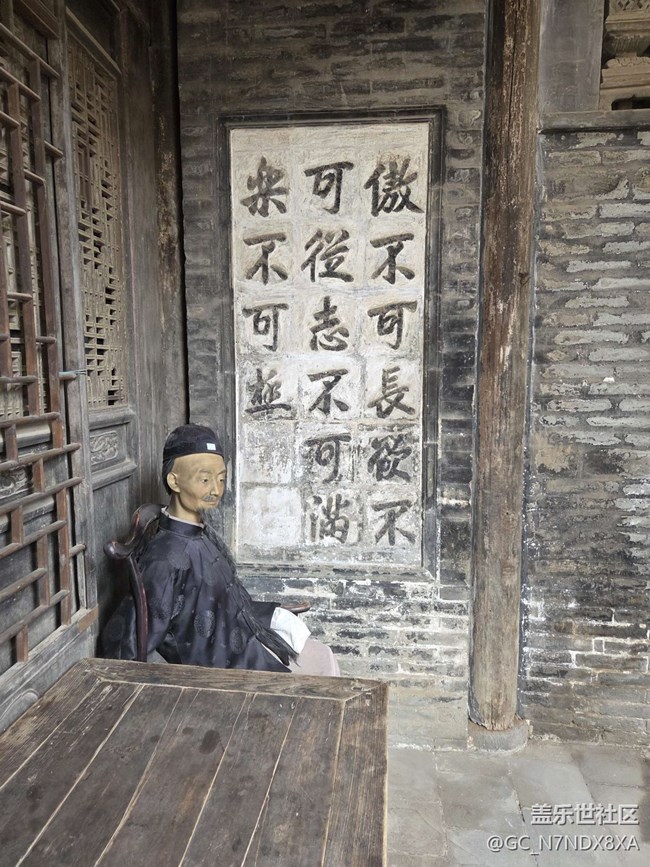 傲不可長欲不
可從志不可滿
樂不可極
盖乐世社区
@GC_N7NDX8XA